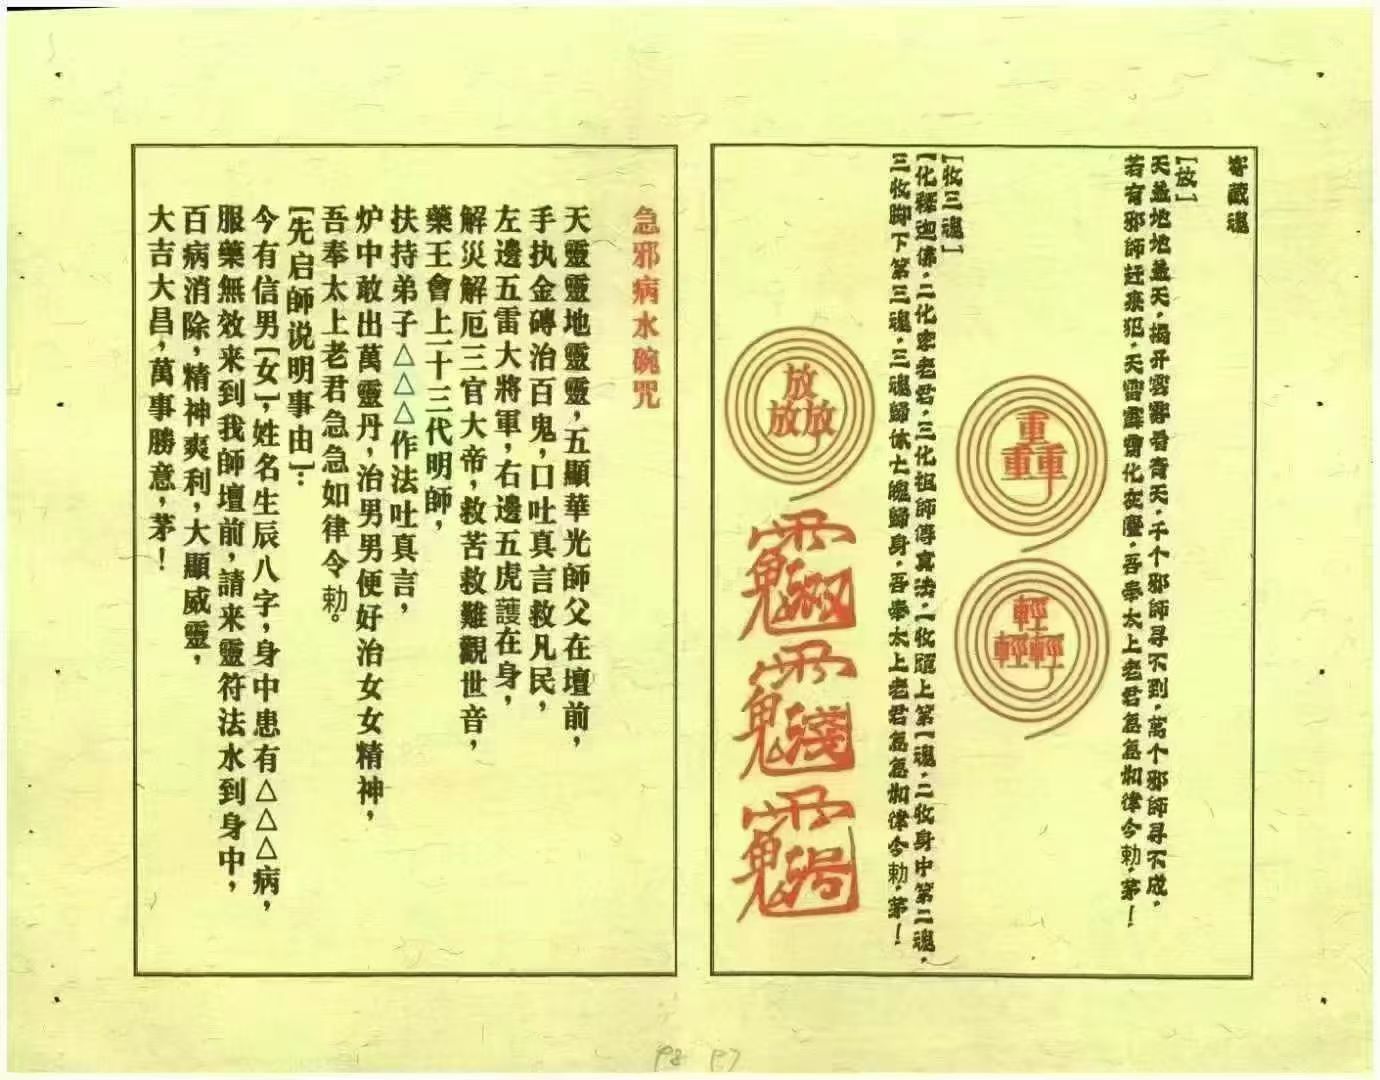 寄藏魂
[放]
天蓋地地蓋天，揭开雲霧看青天，千个邪師寻不到，萬个邪師寻不成，
若有邪師赶来犯，天雷霹雳化灰塵，吾奉太上老君急急如律令勅，茅！
重
重重
輕
輕輕
[收三魂]
一化釋迦佛，二化李老君，三化祖師傳真法，一收頭上第一魂，二收身中第二魂，
三收脚下第三魂，三魂歸体七魄歸身，吾奉太上老君急急如律令勅，茅！
放
放放
急邪病水碗咒
天靈靈地靈靈，五顯華光師父在壇前，
手执金磚治百鬼，口吐真言救凡民，
左邊五雷大將軍，右邊五虎護在身，
解災解厄三官大帝，救苦救難觀世音，
藥王會上二十三代明師，
扶持弟子△△△作法吐真言，
炉中敢出萬靈丹，治男男便好治女女精神，
吾奉太上老君急急如律令勅。
[先启師说明事由]：
今有信男[女]，姓名生辰八字，身中患有△△△病，
服藥無效来到我師壇前，請来靈符法水到身中，
百病消除，精神爽利，大顯威靈，
大吉大昌，萬事勝意，茅！
P8 P7